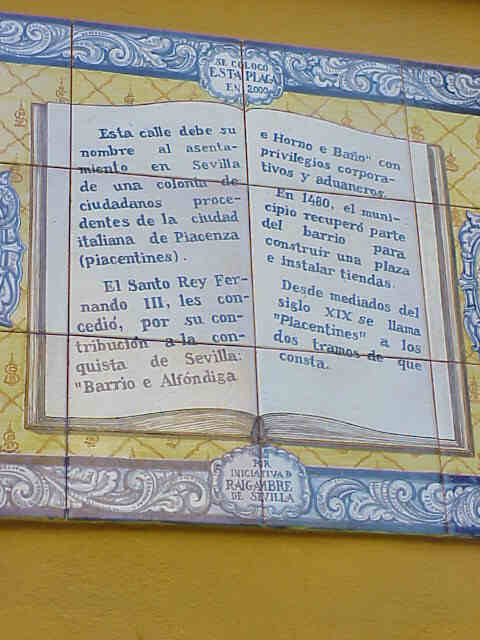 SE COLOCÓ
ESTA PLACA
EN 2000
Esta calle debe su
nombre al asenta-
miento en Sevilla
de una colonia de
ciudadanos proce-
dentes de la ciudad
italiana de Piacenza
(piacentines).
El Santo Rey Fer-
nando III, les con-
cedió, por su con-
tribución a la con-
quista de Sevilla:
"Barrio e Alfóndiga
e Horno e Baño" con
privilegios corpora-
tivos y aduaneros.
En 1480, el muni-
cipio recuperó parte
del barrio para
construir una plaza
e instalar tiendas.
Desde mediados del
siglo XIX se llama
"Placentines" a los
dos tramos de que
consta.
POR
INICIATIVA D
RAIGAMBRE
DE SEVILLA